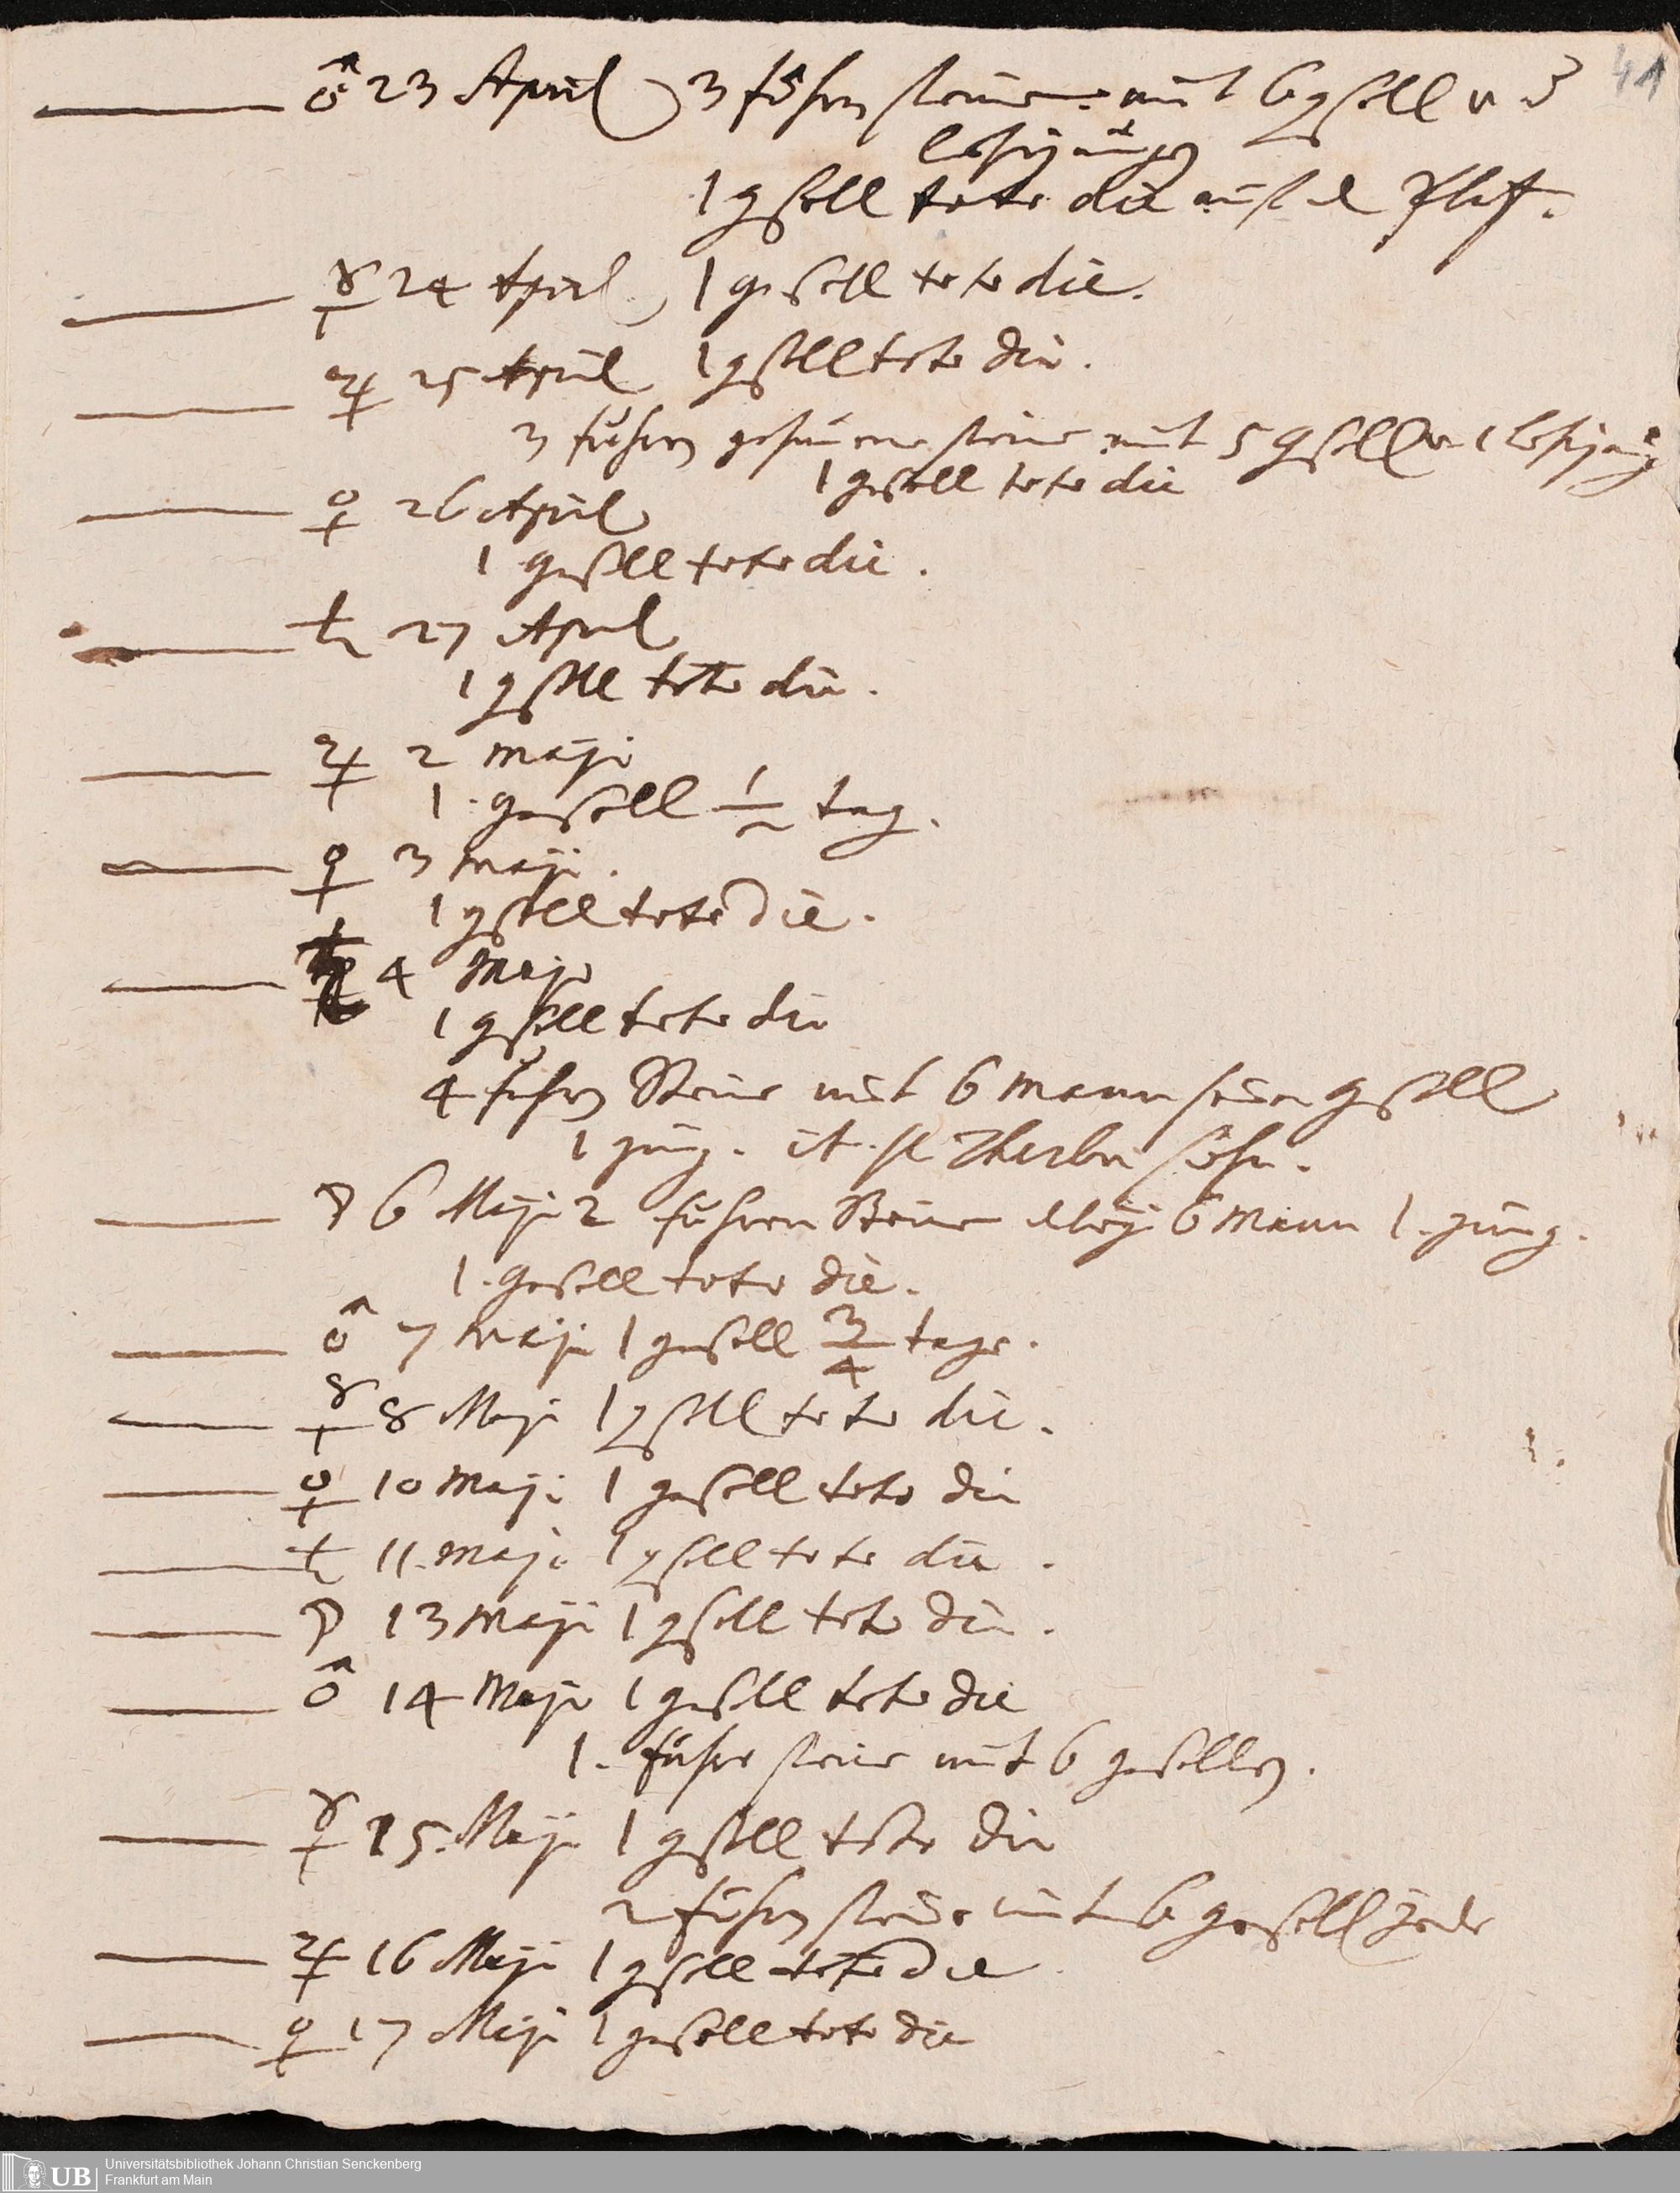 ♂ 23 April 3 fuhren steine mit 6 gesell u 3 41
lehrjungen
1 gsell toto die
☿ 24 April 1 gesell toto die.
♃ 25 April 1 gsell toto die.
3 fuhren steine mit 5 gsell u 1 lehrjung
1 gesell toto die
♀ 26 April
1 gesell toto die.
♄ 27 April
1 gsell toto die.
♃ 2 Maji
1. gesell 1/2 tag.
♀ 3 Maji.
1 gsell toto die.
♄ 4 Maji
1 gsell toto die
4 fuhren Steine mit 6 Mann gsell
1 jung. it.
☽ 6 Maji 2 fuhren Steine 6 Mann 1. jung.
1. gesell toto die.
♂ 7 Maji 1 gesell 3/4 tage.
☿ 8 Maji 1 gsell toto die.
♀ 10 Maji 1 gesell toto die
♄ 11. Maji 1 gsell toto die.
☽ 13 Maji 1 gsell toto die.
♂ 14 Maji 1 gesell toto die
1. fuhre steine mit 6 gesellen.
☿ 15. Maji 1 gsell toto die
2 fuhren steine mit 6 gesell jede
♃ 16 Maji 1 gsell toto die
♀ 17 Maji 1 gesell toto die
UB Universitätsbibliothek Johann Christian Senckenberg
Frankfurt am Main